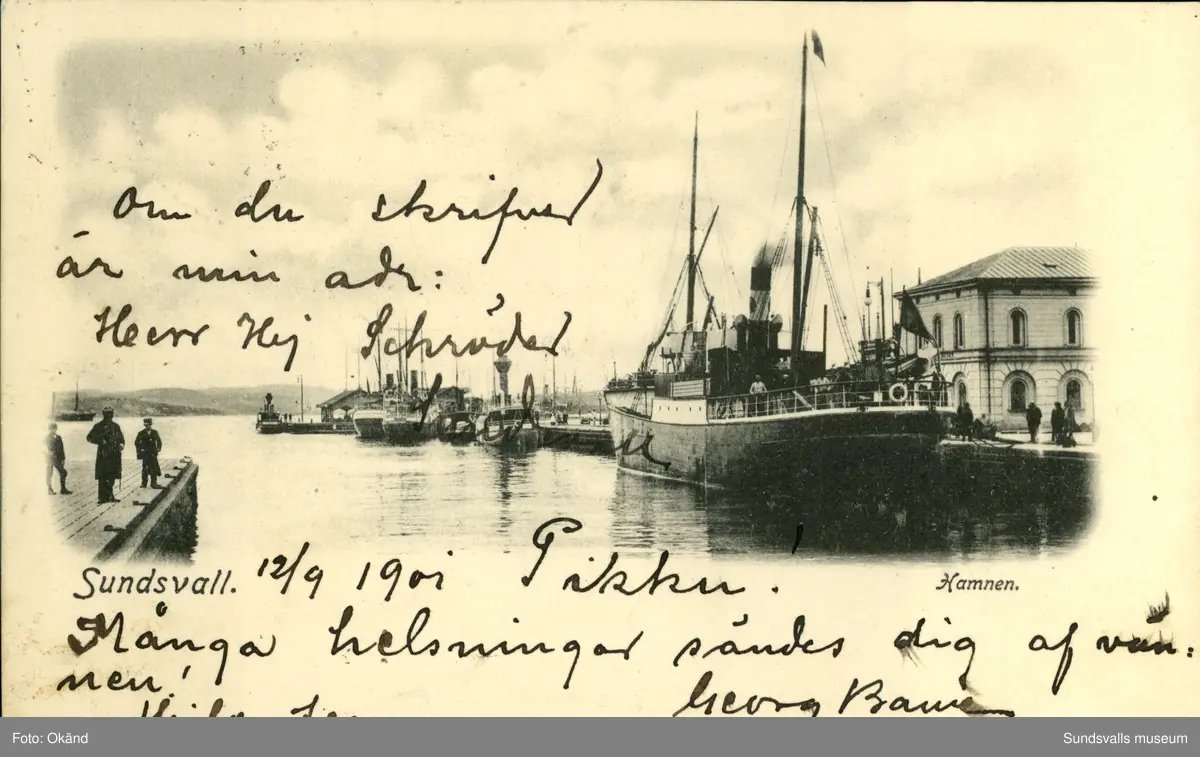 Om du skrifver
är min adr:
Herr Hej Schröder
Sundsvall. 12/9 1901 Pikku.
Hamnen.
Många helsningar sändes dig af vän:
nen!
Georg
Foto: Okänd
Sundsvalls museum